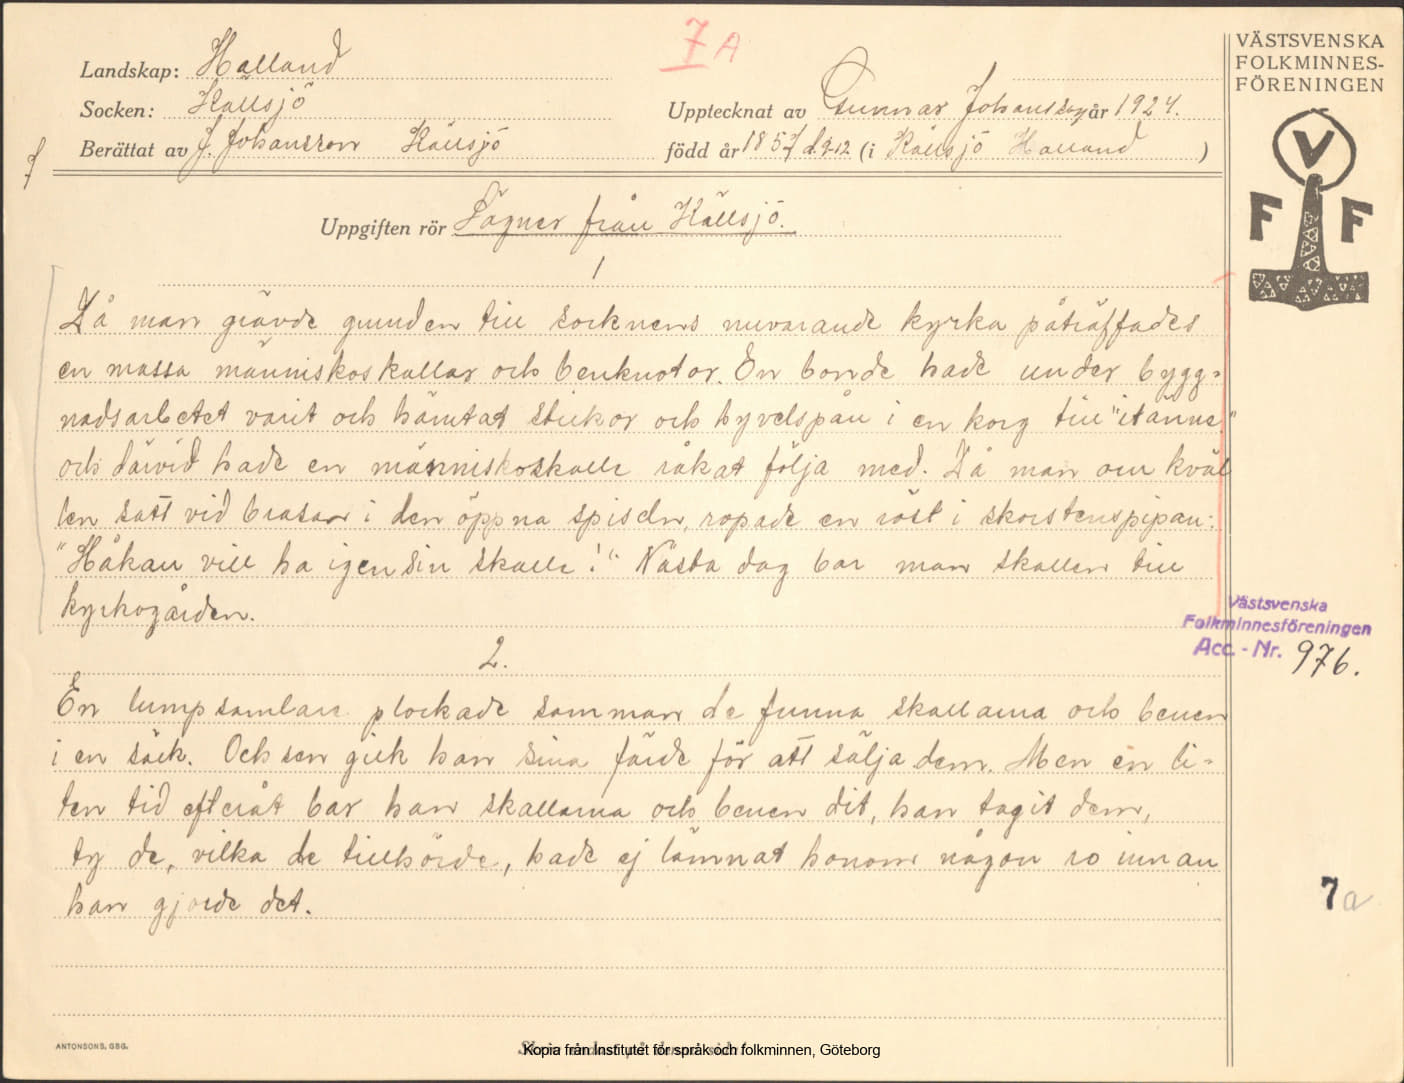 7 A
VÄSTSVENSKA
FOLKMINNES-
FÖRENINGEN
Landskap: Halland
Socken: Källsjö
Upptecknat av Gunnar Johansson år 1924.
Berättat av J. Johansson Källsjö
född år 1857 d. 9-12 (i Källsjö Halland )
7
V
F F
Uppgiften rör Sägner från Källsjö.
1
Då man grävde grunden till socknens nuvarande kyrka påträffades
en massa människoskallar och benknotor. En bonde hade under bygg-
nadsarbetet varit och hämtat stickor och hyvelspån i en korg till "itänne."
och därvid hade en människoskalle råkat följa med. Då man om kväl
len satt vid brasan i den öppna spiseln, ropade en röst i skorstenspipan:
"Håkan vill ha igen sin skalle!" Nästa dag bar man skallen till
kyrkogården.
Västsvenska
Folkminnesföreningen
Acc. - Nr. 976.
2.
En lumpsamlare plockade samman de funna skallarna och benen
i en säck. Och sen gick han sina färde för att sälja dem. Men en li-
ten tid efteråt bar han skallarna och benen dit, han tagit dem,
ty de, vilka de tillhörde, hade ej lämnat honom någon ro innan
han gjorde det.
7 a
ANTONSONS, GBG.
Kopia från Institutet för språk och folkminnen, Göteborg